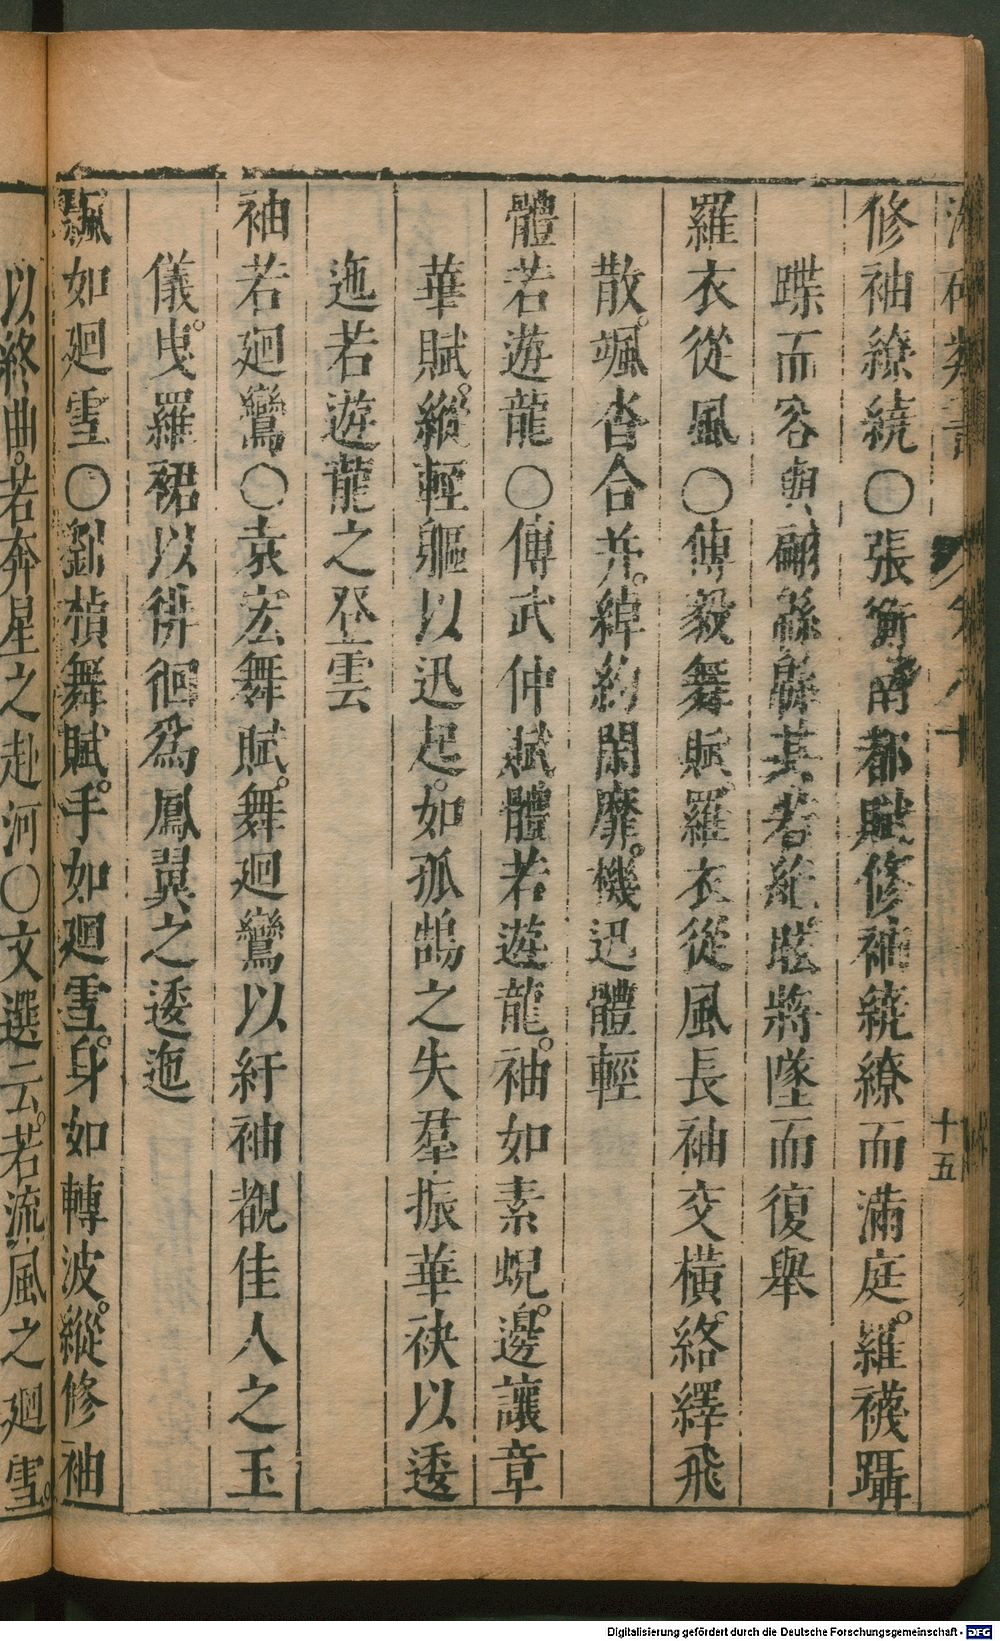 卷八十
十五
修袖繚繞〇張衡南都賦修袖繞繚而滿庭。羅襪躡
蹀而容與翩綿綿其若絶眩將墜而復舉
羅衣從風〇傅毅舞賦。羅衣從風長袖交橫。絡繹飛
散。颯沓合并。綽約閑靡。機迅體輕
體若遊龍〇傅武仲賦體若遊龍。袖如素蜺。邊讓章
華賦。縱輕軀以迅起。如孤鵠之失羣。振華袂以逶
迤若遊龍之登雲
袖若廻鸞〇袁宏舞賦。舞廻鸞以紆袖覩佳人之玉
儀。曳羅裙以徘徊爲鳳翼之逶迤
飄如廻雪〇劉楨舞賦。手如廻雪。身如轉波。縱修袖
以終曲。若奔星之赴河〇文選云。若流風之廻雪。
Digitalisierung gefördert durch die Deutsche Forschungsgemeinschaft - DFG